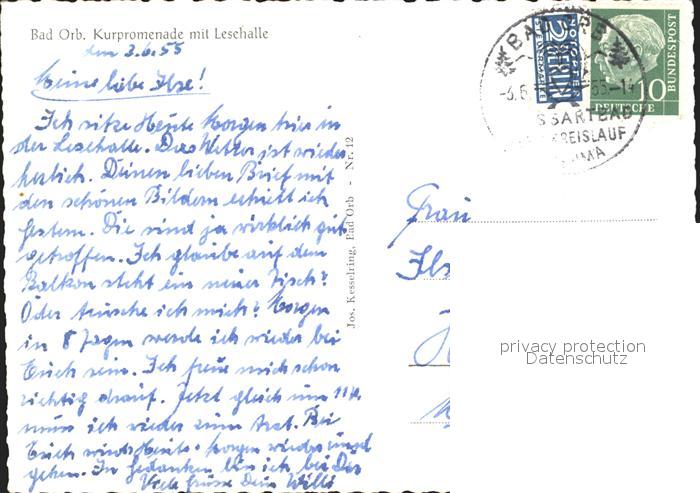 Bad Orb. Kurpromenade mit Lesehalle
den 3.6.55
Meine liebe Ilse!
Ich sitze Heute Morgen hier in
der Lesehalle. Das Wetter ist wieder
herlich. Deinen lieben Brief mit
den schönen Bildern erhielt ich
gestern. Die sind ja wirklich gut
getroffen. Ich glaube auf dem
Balkon steht ein neuer Tisch?
Oder täusche ich mich? Morgen
in 8 Tagen werde ich wieder bei
Euch sein. Ich freue mich schon
richtig drauf. Jetzt gleich um 11 h
muss ich wieder zum Arzt. Bei
Euch wirds Heute Morgen wieder
gehen. In Gedanken bin ich bei Dir
Viele Grüsse Dein Willi
Jos. Kesselring, Bad Orb - Nr. 12
BAD ORB
-3.6. 55.-14
SSARTBAD
KREISLAUF
2 BERLIN
NOTOPFER
STEUERMARKE
10
DEUTSCHE
BUNDESPOST
Frau
Ils
privacy protection
Datenschutz